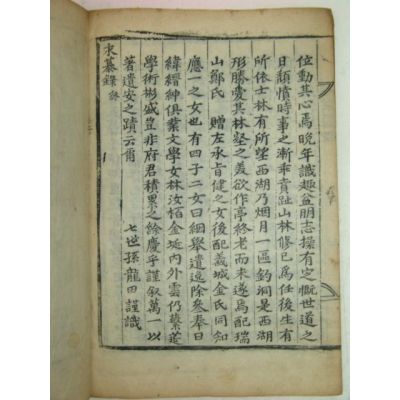 位動其心焉晩年識趣益明志操有定慨世道之
日頹憤時事之漸乖賁趾山林修已爲任後生有
所依士林有所望西湖乃烟月一區釣洞是西湖
形勝愛其林壑之美欲作亭終老而未遂焉配瑞
山鄭氏 贈左承旨健之女後配義城金氏同知
應一之女也有四子二女曰細擧遺逸除參奉曰
緯縉紳俱業文學女林汝栢金埏內外雲仍蕃莚
學術彬盛豈非府君積累之餘慶乎謹叙萬一以
著遺安之蹟云爾
七世孫龍田謹識
永慕錄